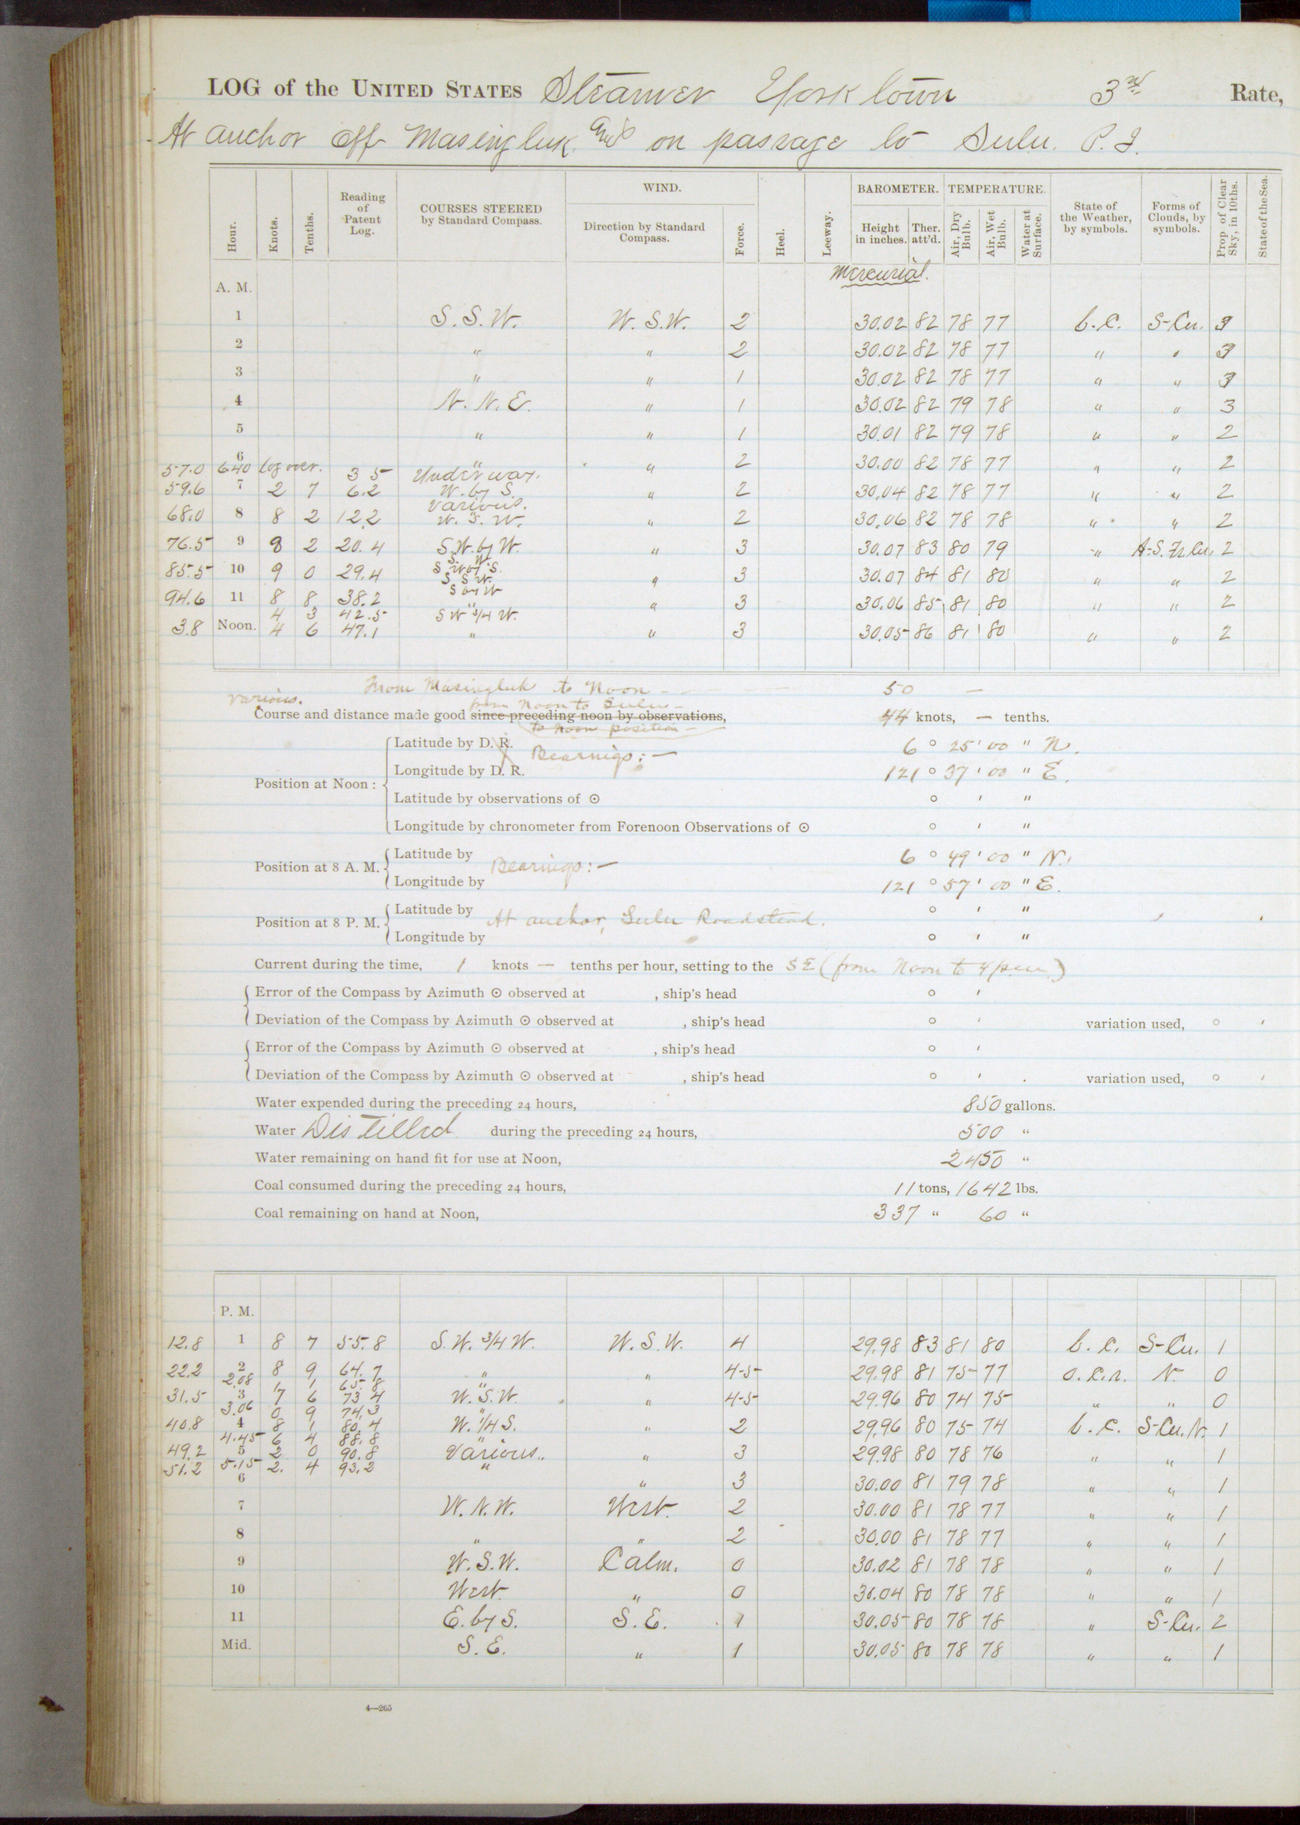 LOG of the UNITED STATES Steamer Yorktown 3rd Rate,
At anchor off Masingluk and on passage to Sulu. P.I.
Hour. Knots. Tenths. Reading of Patent Log. COURSES STEERED by Standard Compass. WIND. Direction by Standard Compass. Force. Heel. Leeway. BAROMETER. Height in inches. Ther. att'd. TEMPERATURE. Air, Dry Bulb. Air, Wet Bulb. Water at Surface. State of the Weather, by symbols. Forms of Clouds, by symbols. Prop. of Clear Sky, in 10ths. State of the Sea.
Mercurial.
A. M.
1 S. S. W. W. S. W. 2 30.02 82 78 77 b.c. S-Cu. 3
2 " " 2 30.02 82 78 77 " " 3
3 " " 1 30.02 82 78 77 " " 3
4 N. N. E. " 1 30.02 82 79 78 " " 3
5 " " 1 30.01 82 79 78 " " 2
6 " " 2 30.00 82 78 77 " " 2
57.0 640 log over. 3 5 Underway.
59.6 7 2 7 6.2 W. by S. " 2 30.04 82 78 77 " " 2
Various.
68.0 8 8 2 12.2 W. S. W. " 2 30.06 82 78 78 " " 2
76.5 9 8 2 20.4 S.W. by W. " 3 30.07 83 80 79 " A-S. Fr. Cu. 2
S. W.
85.5 10 9 0 29.4 S W by S. " 3 30.07 84 81 80 " " 2
S. S. W.
S by W
94.6 11 8 8 38.2 " " 3 30.06 85 81 80 " " 2
4 3 42.5 S W 3/4 W.
3.8 Noon. 4 6 47.1 " " 3 30.05 86 81 80 " " 2
From Masingluk to Noon - 50 —
various. from Noon to Sulu -
Course and distance made good since preceding noon by observations, 44 knots, — tenths.
to noon position -
Position at Noon: Latitude by D. R. 6 ° 25 ' 00 " N.
Bearings: —
Longitude by D. R. 121 ° 37 ' 00 " E.
Latitude by observations of ☉ ° ' "
Longitude by chronometer from Forenoon Observations of ☉ ° ' "
Position at 8 A. M. Latitude by Bearings: — 6 ° 49 ' 00 " N.
Longitude by 121 ° 57 ' 00 " E.
Position at 8 P. M. Latitude by At anchor, Sulu Roadstead. ° ' "
Longitude by ° ' "
Current during the time, 1 knots — tenths per hour, setting to the SE (from Noon to 4 p.m.)
Error of the Compass by Azimuth ☉ observed at , ship's head ° '
Deviation of the Compass by Azimuth ☉ observed at , ship's head ° ' variation used, ° '
Error of the Compass by Azimuth ☉ observed at , ship's head ° '
Deviation of the Compass by Azimuth ☉ observed at , ship's head ° ' variation used, ° '
Water expended during the preceding 24 hours, 850 gallons.
Water Distilled during the preceding 24 hours, 500 "
Water remaining on hand fit for use at Noon, 2450 "
Coal consumed during the preceding 24 hours, 11 tons, 1642 lbs.
Coal remaining on hand at Noon, 337 " 60 "
P. M.
12.8 1 8 7 55.8 S. W. 3/4 W. W. S. W. 4 29.98 83 81 80 b. c. S-Cu. 1
22.2 2 8 9 64.7 " " 4-5 29.98 81 75 77 o. c. r. N. 0
2.08 1 1 65.8 "
31.5 3 7 6 73 4 W. S. W. " 4-5 29.96 80 74 75 " " 0
3.06 0 9 74.3 "
40.8 4 8 1 80.4 W. 1/4 S. " 2 29.96 80 75 74 b. c. S-Cu. N. 1
4.45 6 4 88.8 "
49.2 5 2 0 90.8 Various. " 3 29.98 80 78 76 " " 1
51.2 5.15 2. 4 93.2 "
6 " 3 30.00 81 79 78 " " 1
7 W. N. W. West. 2 30.00 81 78 77 " " 1
8 " " 2 30.00 81 78 77 " " 1
9 W. S. W. Calm. 0 30.02 81 78 78 " " 1
10 West. " 0 30.04 80 78 78 " " 1
11 E. by S. S. E. 1 30.05 80 78 78 " S-Cu. 2
Mid. S. E. " 1 30.05 80 78 78 " " 1
4—265